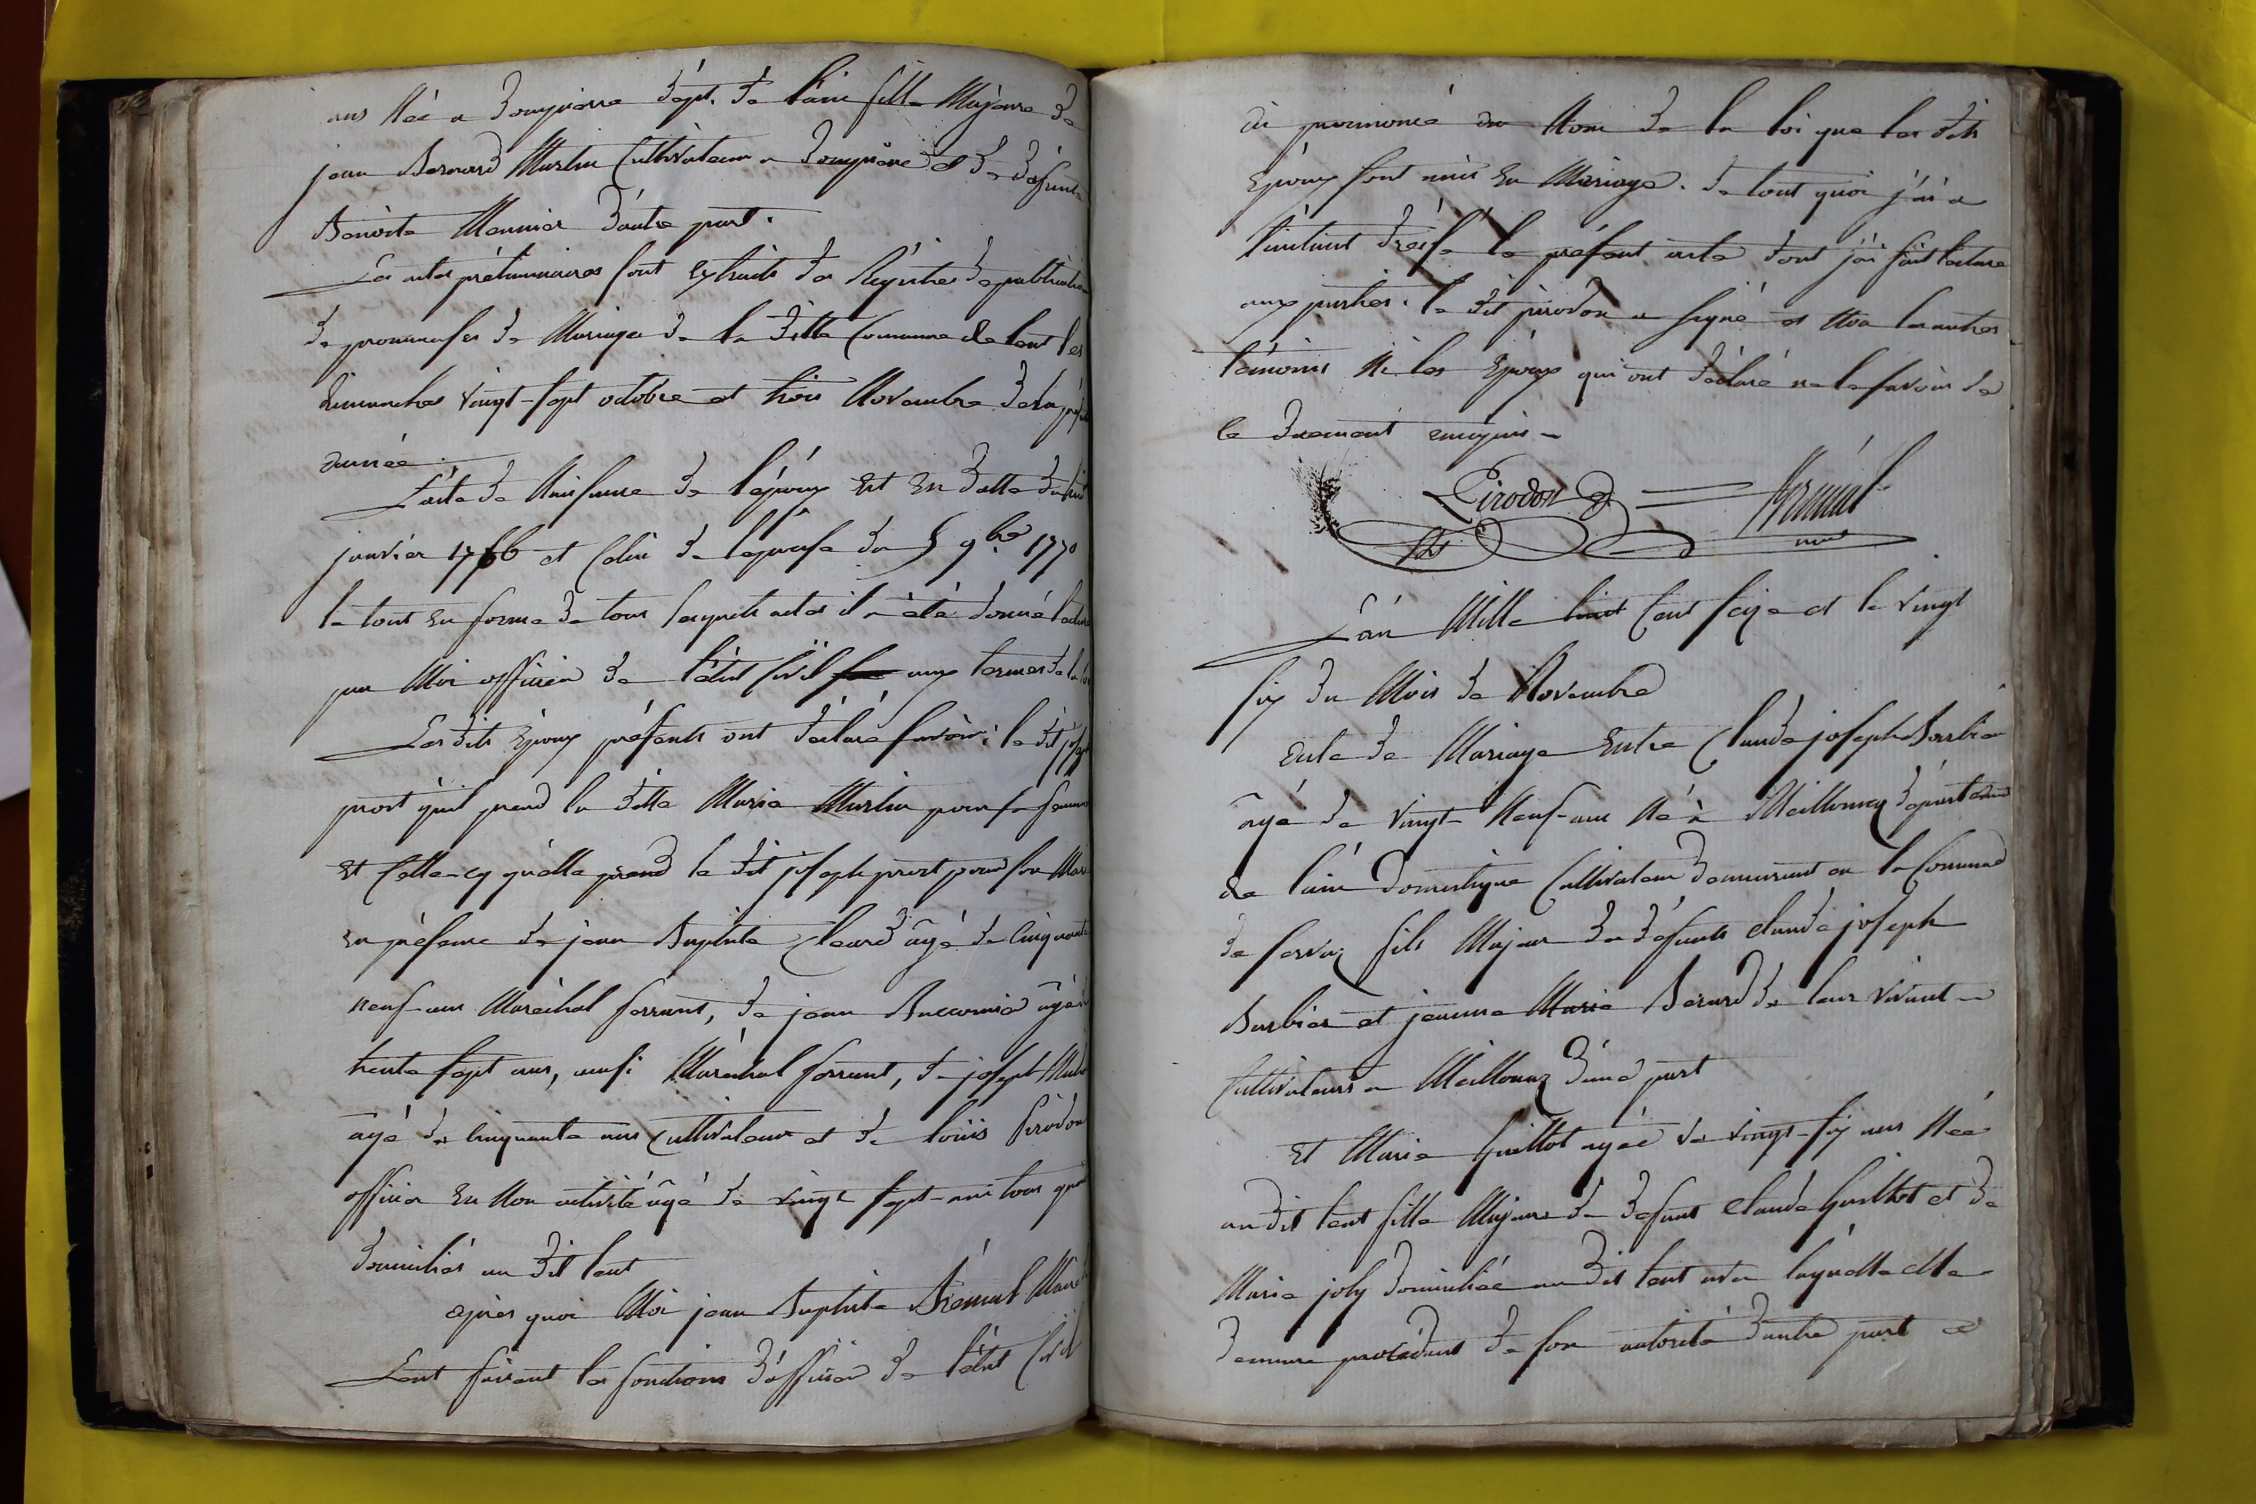 ans Née a Dompierre dépt. de l'ain fille Majeure de
jean Bernard Martin Cultivateur a Dompierre et de défunte
Benoite Monnier d'autre part.
Les actes préliminaires sont extraits des Régistres de publication
de promesses de Mariage de la ditte Commune de lent les
dimanches vingt-sept octobre et trois Novembre de la
année.
L'acte de Naissance de l'époux est en datte du huit
janvier et Celui de l'epouse du 5 9bre 1770
le tout en forme de tous lesquels actes il a été donné lecture
par Moi officier de l'état Civil aux termes de la loi
Les dits époux présents ont déclaré savoir; le dit joseph
prost qu'il prend la ditte Marie Martin pour sa femme
et Celle-cy qu'elle prend le dit joseph prost pour son Mari
en présence de jean Baptiste âgé de Cinquante
neuf ans Maréchal ferrant, de jean âgé de
trente sept ans, aussi Maréchal ferrant, de joseph
âgé de Cinquante ans Cultivateur et de loüis Pirodon
officier en Non activité âgé de vingt sept ans tous quatre
domiciliés au dit lent
après quoi Moi jean Baptiste Maire
Lent faisant les fonctions d'officier de l'état Civil
ai prononcé au Nom de la loi que les dits
époux sont unis en Mariage. de tout quoi j'ai a
l'instant dressé le présent acte dont j'ai fait lecture
aux parties. le dit pirodon a signé et Non les autres
témoins Ni les époux qui ont déclaré ne le savoir de
ce duement enquis
Pirodon
L'an Mille huit Cent seize et le vingt
six du Mois de Novembre
acte de Mariage entre Claude joseph Barbier
âgé de vingt-Neuf-ans Né à Meillonnaz département
de l'ain Domestique Cultivateur demeurant en la Commune
de servaz fils Majeur de défunts Claude joseph
Barbier et jeanne Marie Bérard de leur vivant
Cultivateurs a Meillonnaz d'une part
et Marie Guillot agée de vingt-six ans Née
au dit lent fille Majeure de défunt Claude Guillot et de
Marie joly domiciliée au dit lent avec laquelle elle
demeure procédant de son autorité d'autre part